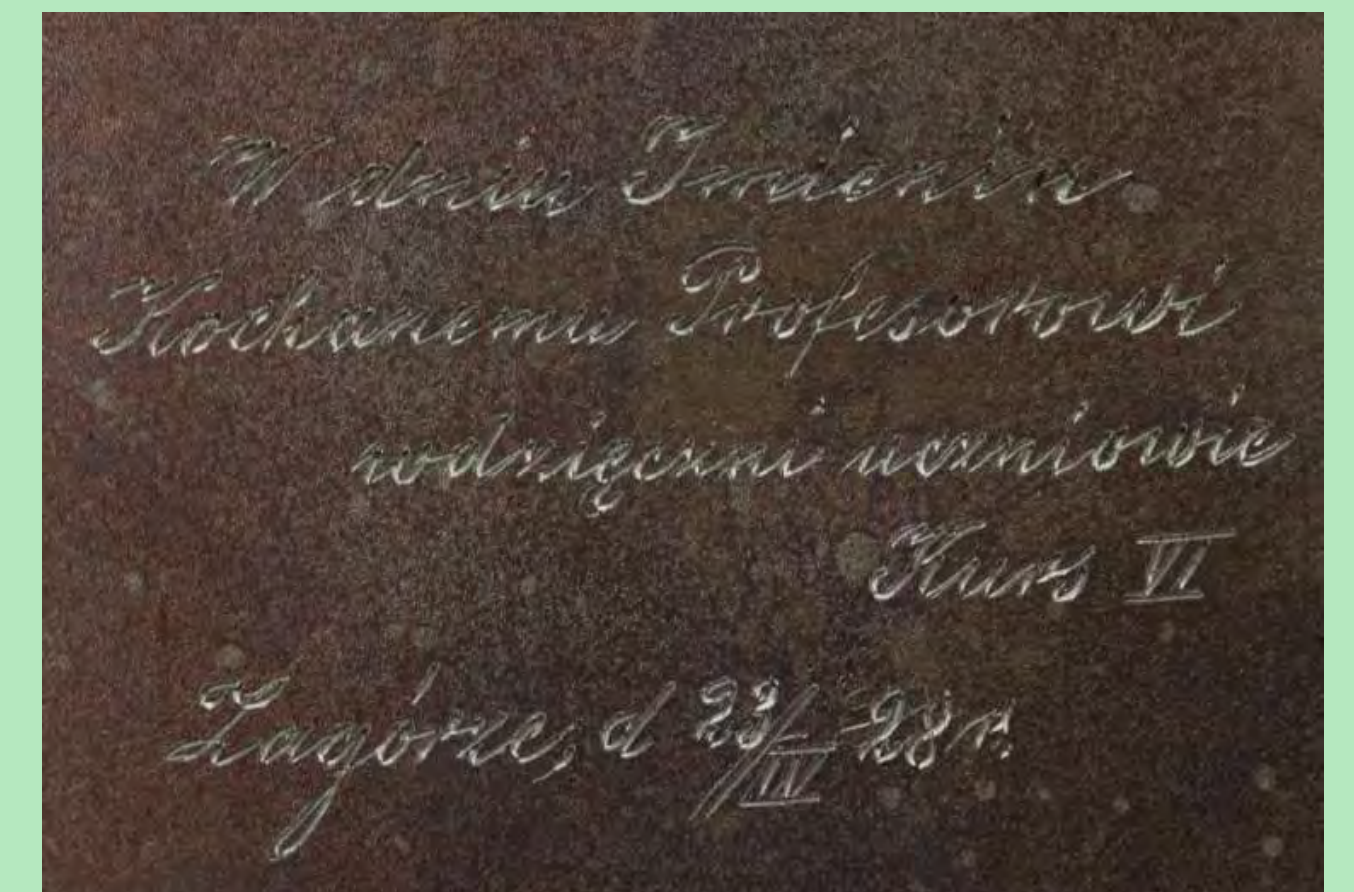 W dniu Imienin
Kochanemu Profesorowi
wdzięczni uczniowie
Kurs VI
Zagórze, d 23/IV -28 r.